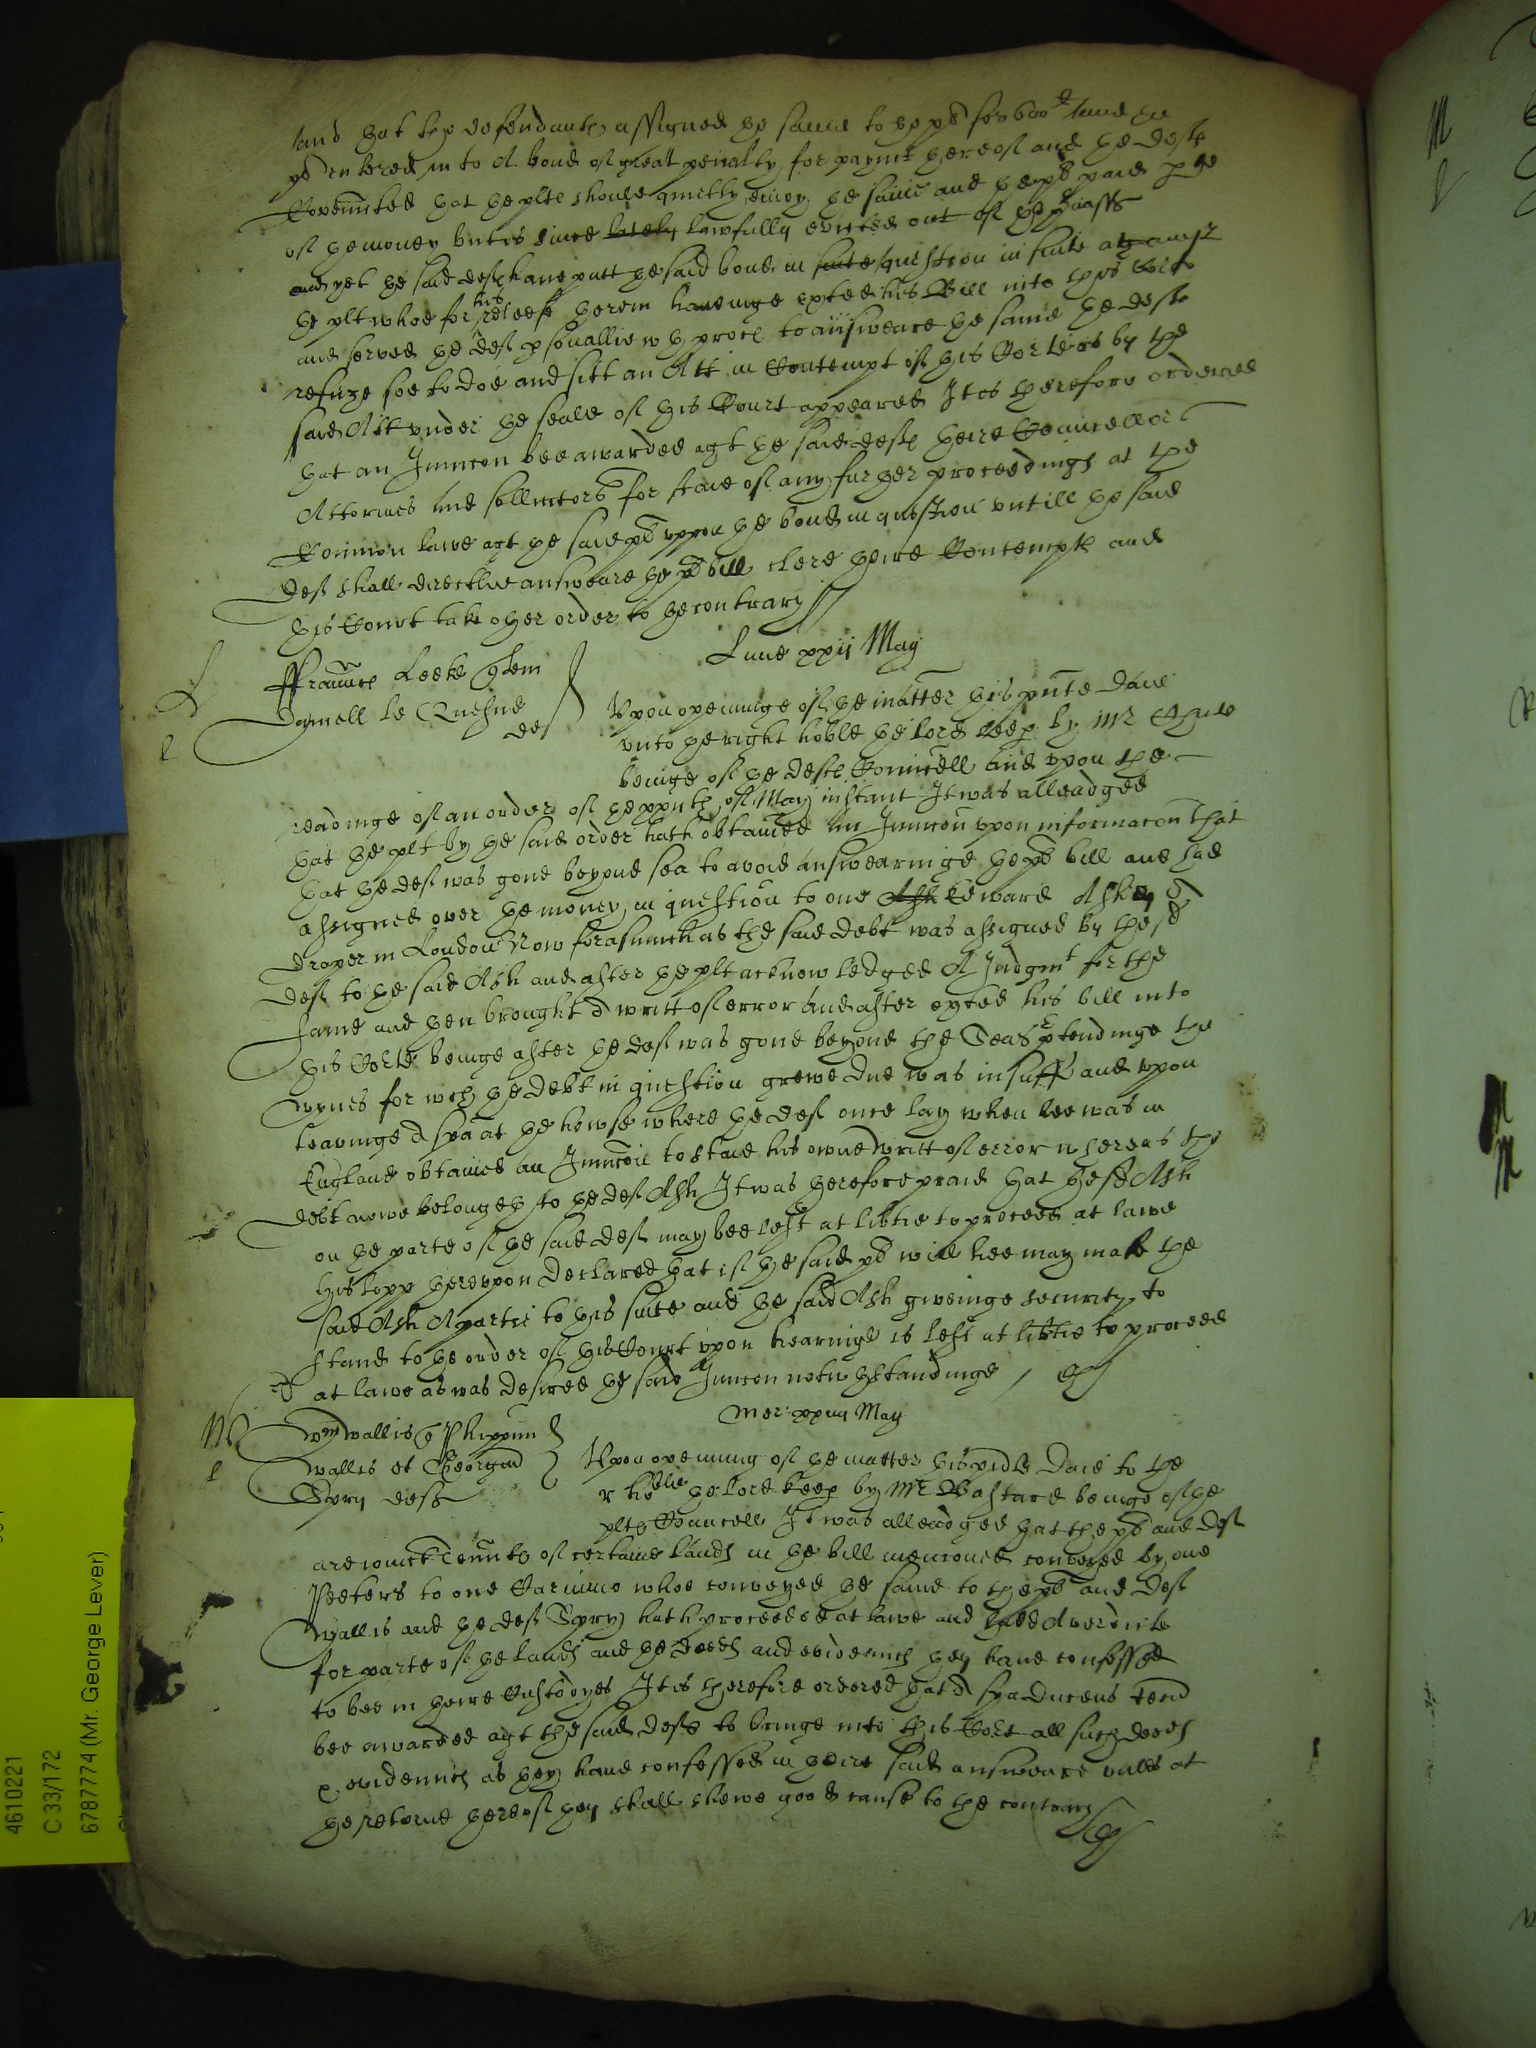 land that the defendants assigned the same to the plt for 600li and the
plt entered in to A bond of great penalty for paymt thereof and the defts
Covennted that the plt should quietly enioy the same and the plt paid pte
of the money but is since lately lawfully evicted out of the pmisss
and yet the said defts have putt the said bond in suite question in suite against
the plt whoe for his releefe herein haveinge exhted his Bill into this Corte
and served the deft psonallie wth proces to aunsweare the same the defts
refuze soe to doe and sitt an Att in Contempt of this Corte as by the
said Att under the seale of this Court appeared It is therefore ordered
that an Iniuncon bee awarded agt the said defts theire Councellors
Attornies and sollicitors for staie of any further proceedings at the
Common lawe agt the said plt uppon the bond in question untill the said
deft shall directlie answeare the plts bill clere theire Contempts and
this Court take other order to the contrary
Lune xxij May
Fraunces Leeke quer
Upon openinge of the matter this pnte daie
unto the right hoble the lord keep by Mr
def
beinge of the defts Councell and upon the
readinge of an order of the of May instant It was alleadged
that the plt by the said order hath obtained an Iniuncon upon informacon that
that the deft was gone beyond sea to avoid answearinge the plts bill and had
assigned over the money in question to one Ash Edward Ash
draper in London Now forasmuch as the said debt was assigned by the sd
deft to the said Ash and after the plt acknowledged A Iudgmt for the
same and then brought a writt of error and after exhted his bill into
this Corte beinge after the deft was gone beyond the Seas ptendinge the
wynes for wch the debt in question grewe due was insuff and upon
leavinge a spa at the howse where the deft once lay when hee was in
England obtained an Iniuncon to staie his owne writt of error whereas the
debt nowe belongeth to the def Ash It was therefore praid that the sd Ash
on the parte of the said deft may bee left at libtie to proceed at lawe
his lopp thereupon declared that if the said plt will hee may make the
said Ash A partie to this suite and the said Ash giveinge security to
stand to the order of this Court upon hearinge is left at libtie to proceed
at lawe as was desired the said Iniuncon notwthstandinge
Mer: xxiiij May
Wm Wallis q Phillippum
Wallis et Georgiu
Upon openinge of the matter this pnte daie to the
Spry defts
r hoble the lord keep by Mr Bastard beinge of the
plts Councell It was alleadged that the plt and deft
are ioinct Tennts of certaine lands in the bill mencioned conveyed by one
Peeters to one whoe conveyed the same to the plt and deft
Wallis and the deft Spry hath proceeded at lawe and hadd A verdicte
for parte of the lands and the deeds and evidences they have confessed
to bee in theire Custodyes It is therefore ordered that a spa Ducens tecu
bee awarded agt the said defts to bringe into this Corte all such deeds
& evidences as they have confessed in theire said answeare unles at
the retorne thereof they shall shewe good cause to the contrary
4610221
C 33/172
6787774 (Mr. George Lever)